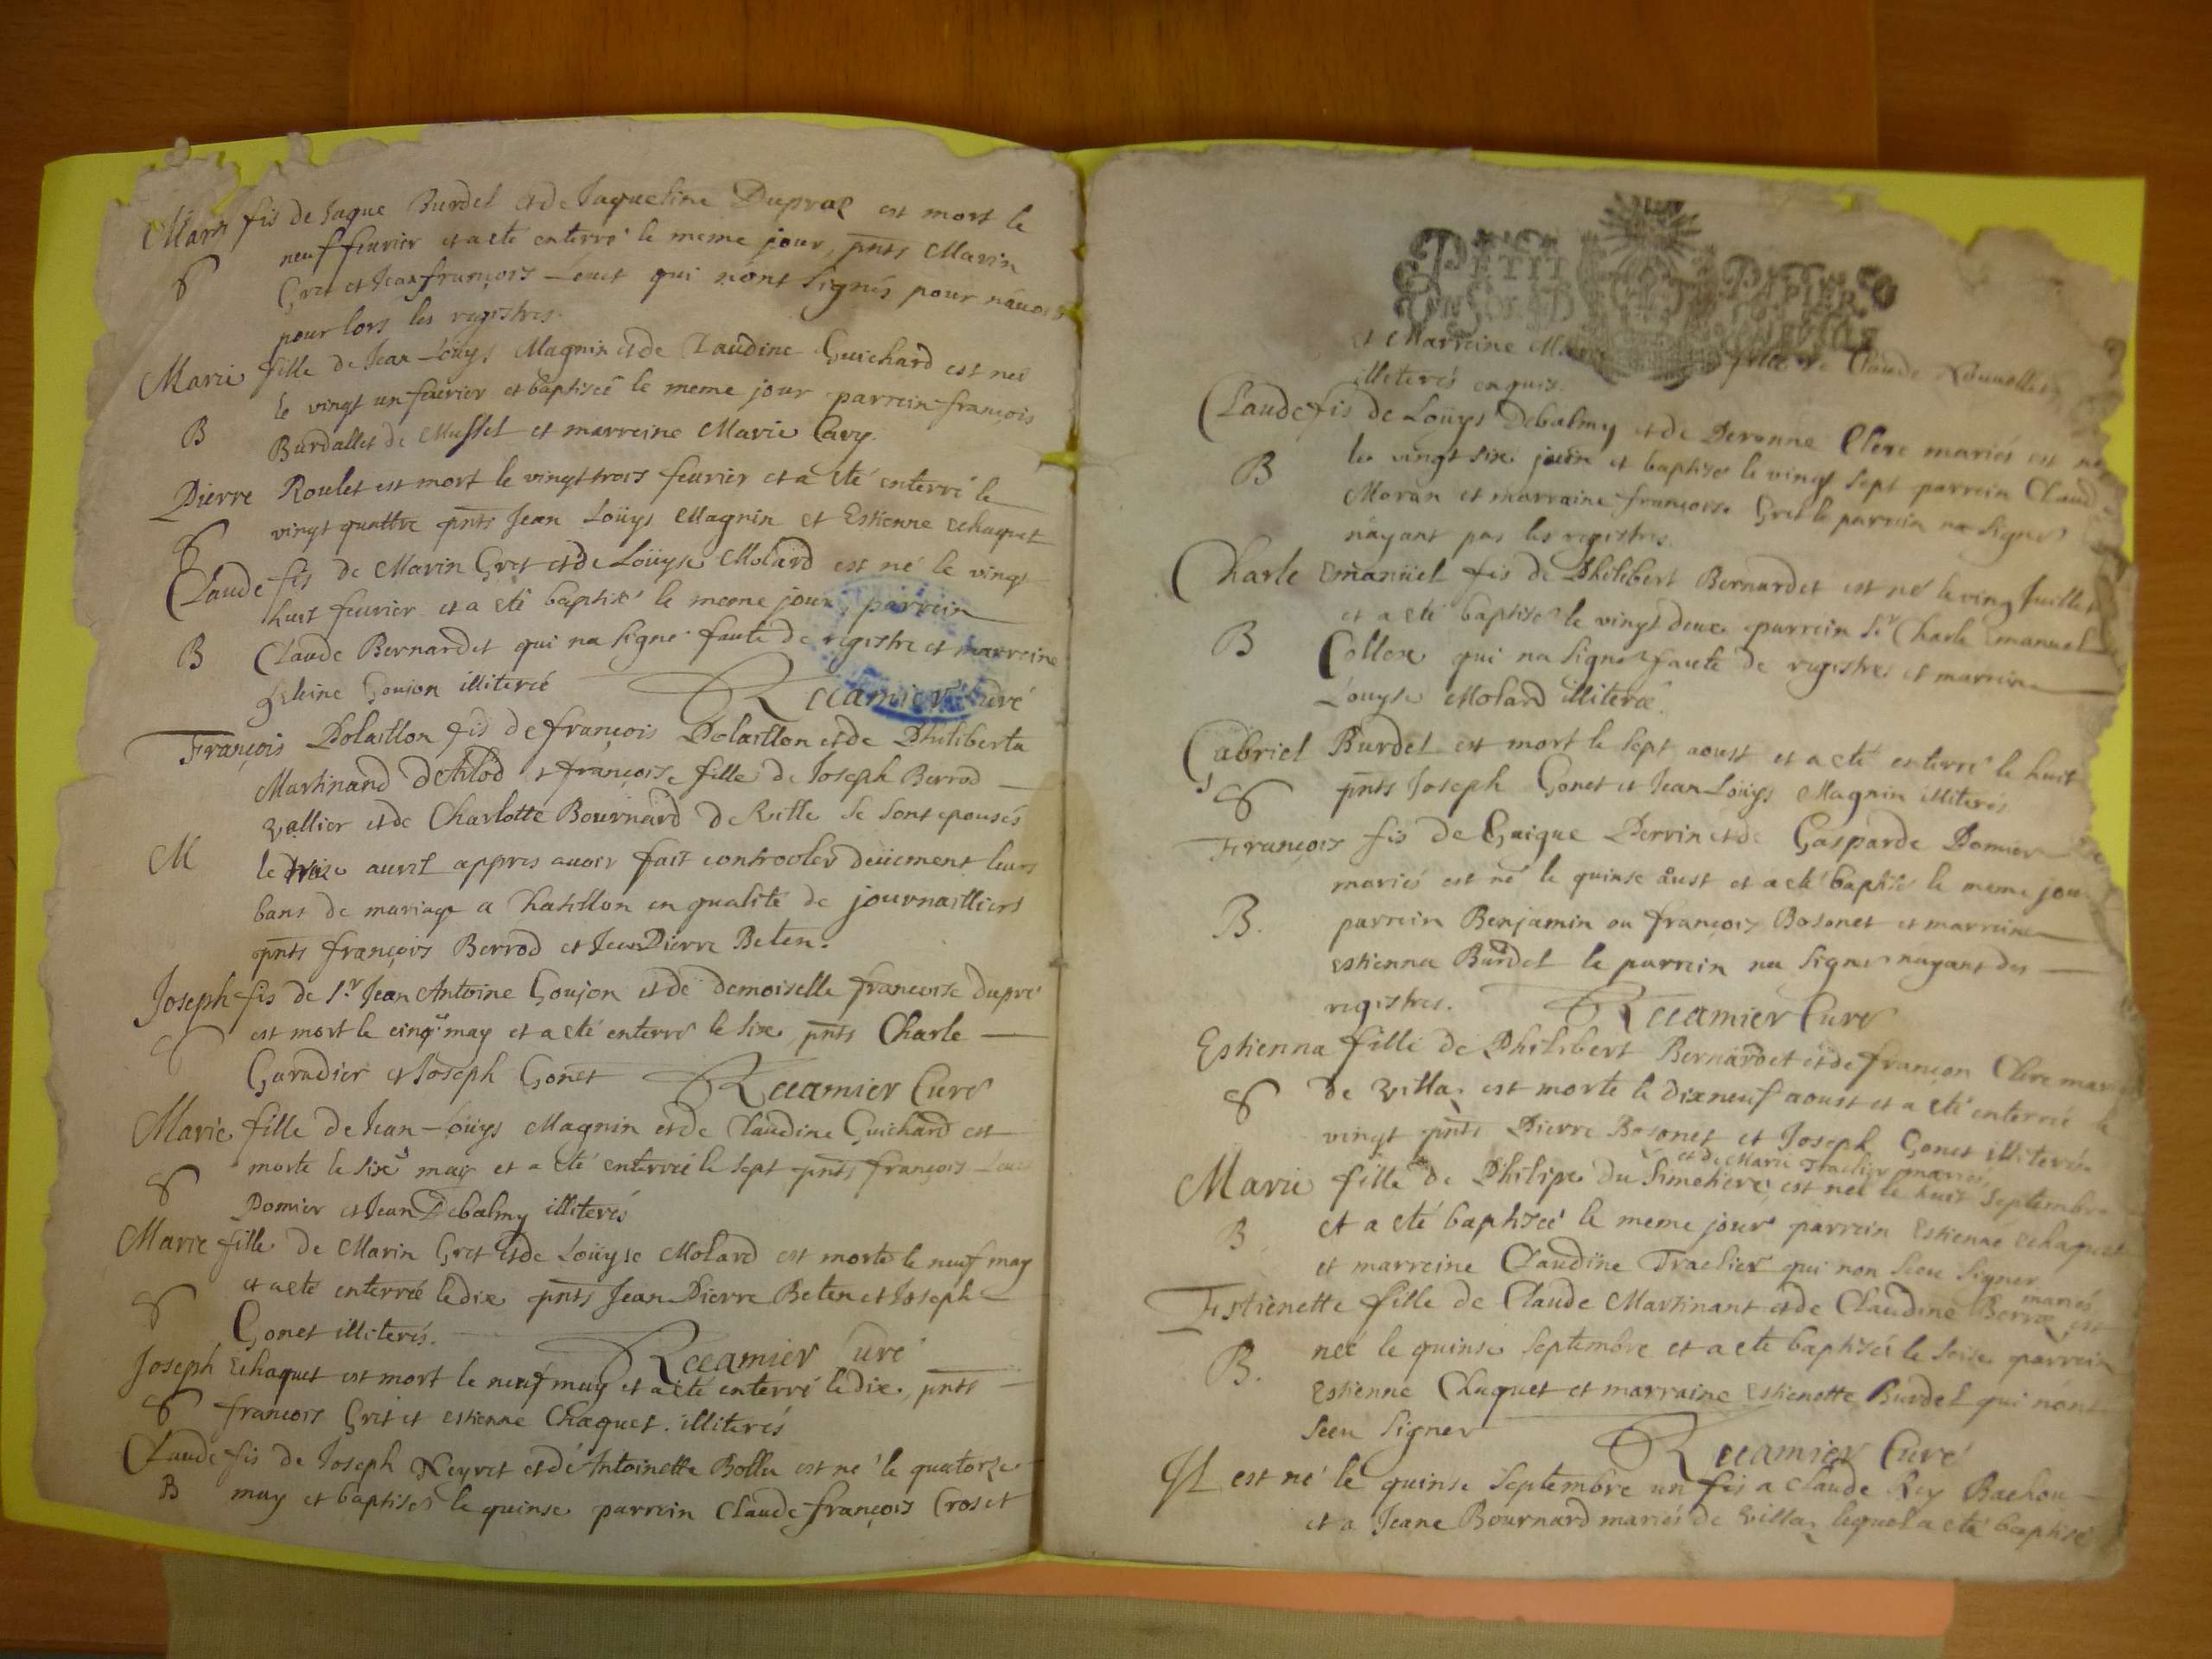 Marin fis de Jaque Burdel et de Jaqueline Dupraz est mort le
neuf feurier et a eté enterré le meme jour, pnts Marin
Gret et Jeanfrançois Louet qui n'ont signés pour n'auoir
pour lors les registres.
Marie fille de Jean Loüys Magnin et de Claudine Guichard est neé
le vingt un feurier et baptiseé le meme jour parrein françois
B Burdallet de Mussel et marreine Marie Cary.
Pierre Roulet est mort le vingt trois feurier et a eté enterré le
vingt quattre pnts Jean Loüys Magnin et Estienne Echaquet
Claude fis de Marin Gret et de Loüyse Molard est né le vingt
huit feurier et a eté baptisé le meme jour, parrein
B Claude Bernardet qui na signé faute de registre et marreine
heleine Goujon illiterée Recamier Curé
François Polaillon fis de françois Polaillon et de Philiberta
Martinand et françoise fille de Joseph Berrod
vallier et de Charlotte Bournard de Ville se sont epousés
M le treize auril appres auoir fait controoler deüement leurs
bans de mariage a Chatillon en qualité de journailliers
pnts françois Berrod et Jean Pierre Beten.
Joseph fis de Sr. Jean Antoine Goujon et de demoiselle francoise dupré
est mort le cinq may et a eté enterré le six pnts Charle
Garadier et Joseph Gonet Recamier Curé
Marie fille de Jean Loüys Magnin et de Claudine Guichard est
morte le six may et a eté enterreé le sept pnts françois Louet
Pomier et Jean Debalmy illiterés
Marie fille de Marin Gret et de Loüyse Molard est morte le neuf may
et a eté enterreé le dix pnts Jean Pierre Beten et Joseph
Gonet illiterés. Recamier Curé
Joseph Echaquet est mort le neuf may et a eté enterré le dix, pnts
françois Gret et estienne Chaquet. illiterés
Claude fis de Joseph Neyret et de Antoinette Bollu est né le quatorze
B may et baptisés le quinse parrein Claude françois Croset
PETIT PAPIER
et Marreine fille de Claude
illiterés enquis.
Claude fis de Loüys Debalmy et de Peronne Clere mariés est né
B le vingt six juin et baptisé le vingt sept parrein Claude
Moran et marraine françoise Gret le parrein na signer
n'ayant pas les registres.
Charle Emanüel fis de Philibert Bernardet est né le ving Juillet
et a eté baptisé le vingt deux parrein Sr Charle Emanuel
B Collex qui na signer faute de registres et marreine
Louyse Molard illiterée.
Gabriel Burdel est mort le sept aoust et a eté enterré le huit
pnts Joseph Gonet et Jean Loüys Magnin illiterés
François fis de Guigue Perrin et de Gasparde Pomier
mariés est né le quinse aust et a eté baptisé le meme jour
B. parrein Benjamin ou françois Bosonet et marreine
estienna Burdel le parrein na signer nayant des
registres. Recamier Curé
Estienna fille de Philibert Bernardet et de françon Clere mariés
de villa est morte le dixneuf aoust et a eté enterreé le
vingt pnts Pierre Bosonet et Joseph Gonet illiterés
et de Marie Traclier mariés
Marie fille de Philipe du Simetiere est neé le huit septembre
B et a eté baptiseé le meme jour parrein Estienne echaquet
et marreine Claudine Traclier qui non sceu signer
mariés
Estienette fille de Claude Martinant et de Claudine est
B. neé le quinse septembre et a eté baptisés le seise parrein
Estienne Chaquet et marraine Estienette Burdel qui n'ont
sceu signer Recamier Curé
Il est né le quinse septembre un fis a Claude Rey Bachou
et a Jeane Bournard mariés de villa lequel a eté baptisé